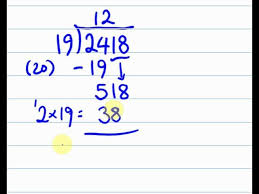 12
19)2418
(20) -19↓
518
'2×19= 38